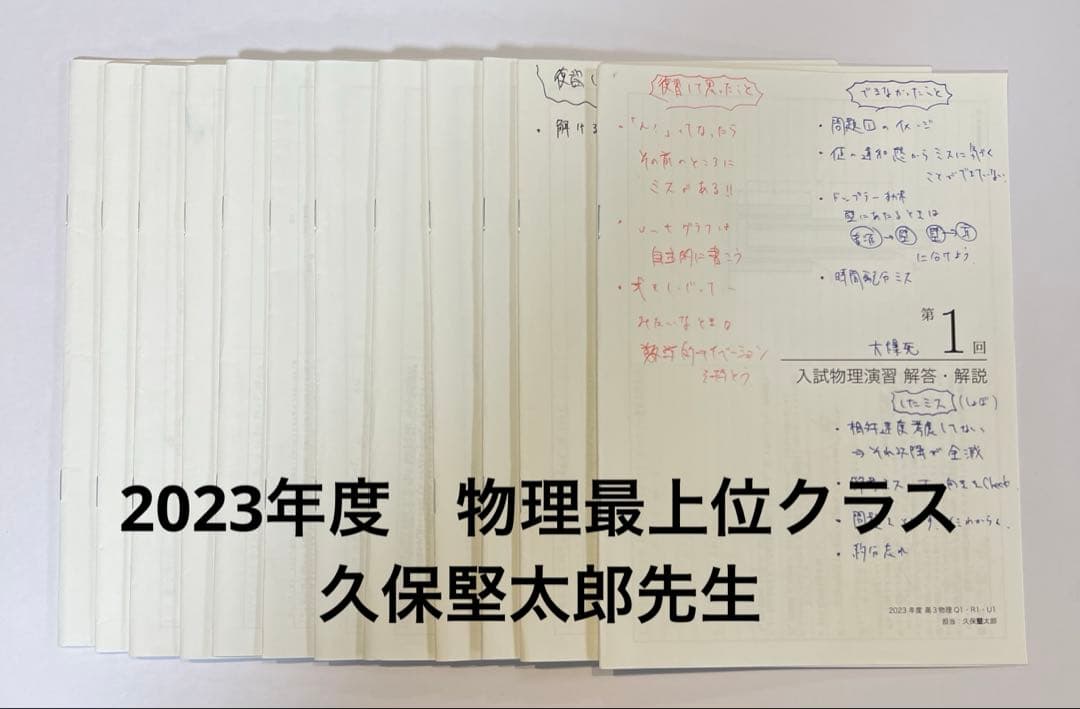 復習し
・解ける
復習して思ったこと
・「ん？」ってなったら
その前のところに
ミスがある!!
・v-tグラフは
自主的に書こう
・式をいじって〜
みたいなときは
数学的モチベーション
を持とう
できなかったこと
・問題のイメージ
・値の違和感からミスに気づく
ことができていない
・ドップラー効果
壁にあたるときは
音源→壁 壁→耳
に分けよう
・時間配分ミス
第1回
大爆死
入試物理演習 解答・解説
したミス(しょぼ)
・相対速度考慮してない
→それ以降が全滅
・約分忘れ
2023年度 物理最上位クラス
久保堅太郎先生
2023年度 高3物理Q1・R1・U1
担当：久保堅太郎